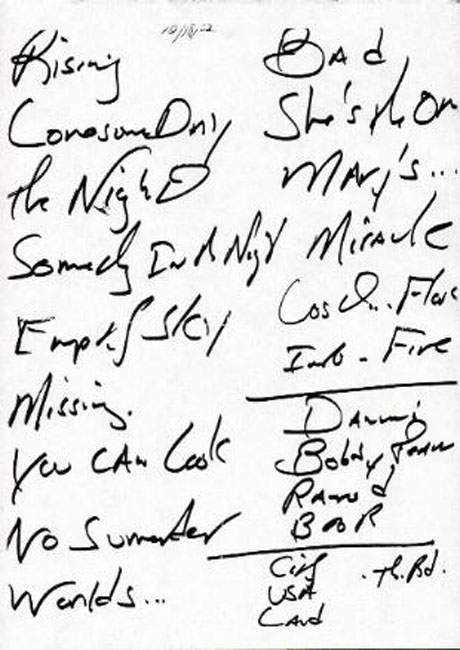 10/18/02
Rising
Lonesome Day
the Night
Somedy In th Nigt
Empty Sky
Missing.
You CAn Look
No Surrender
Worlds...
BAd
She's the On
MAry's...
Miracle
Into - Fire
DAnny
Bobby Jean
RAmrod
BOOR
City . th. Bd.
USA
Land